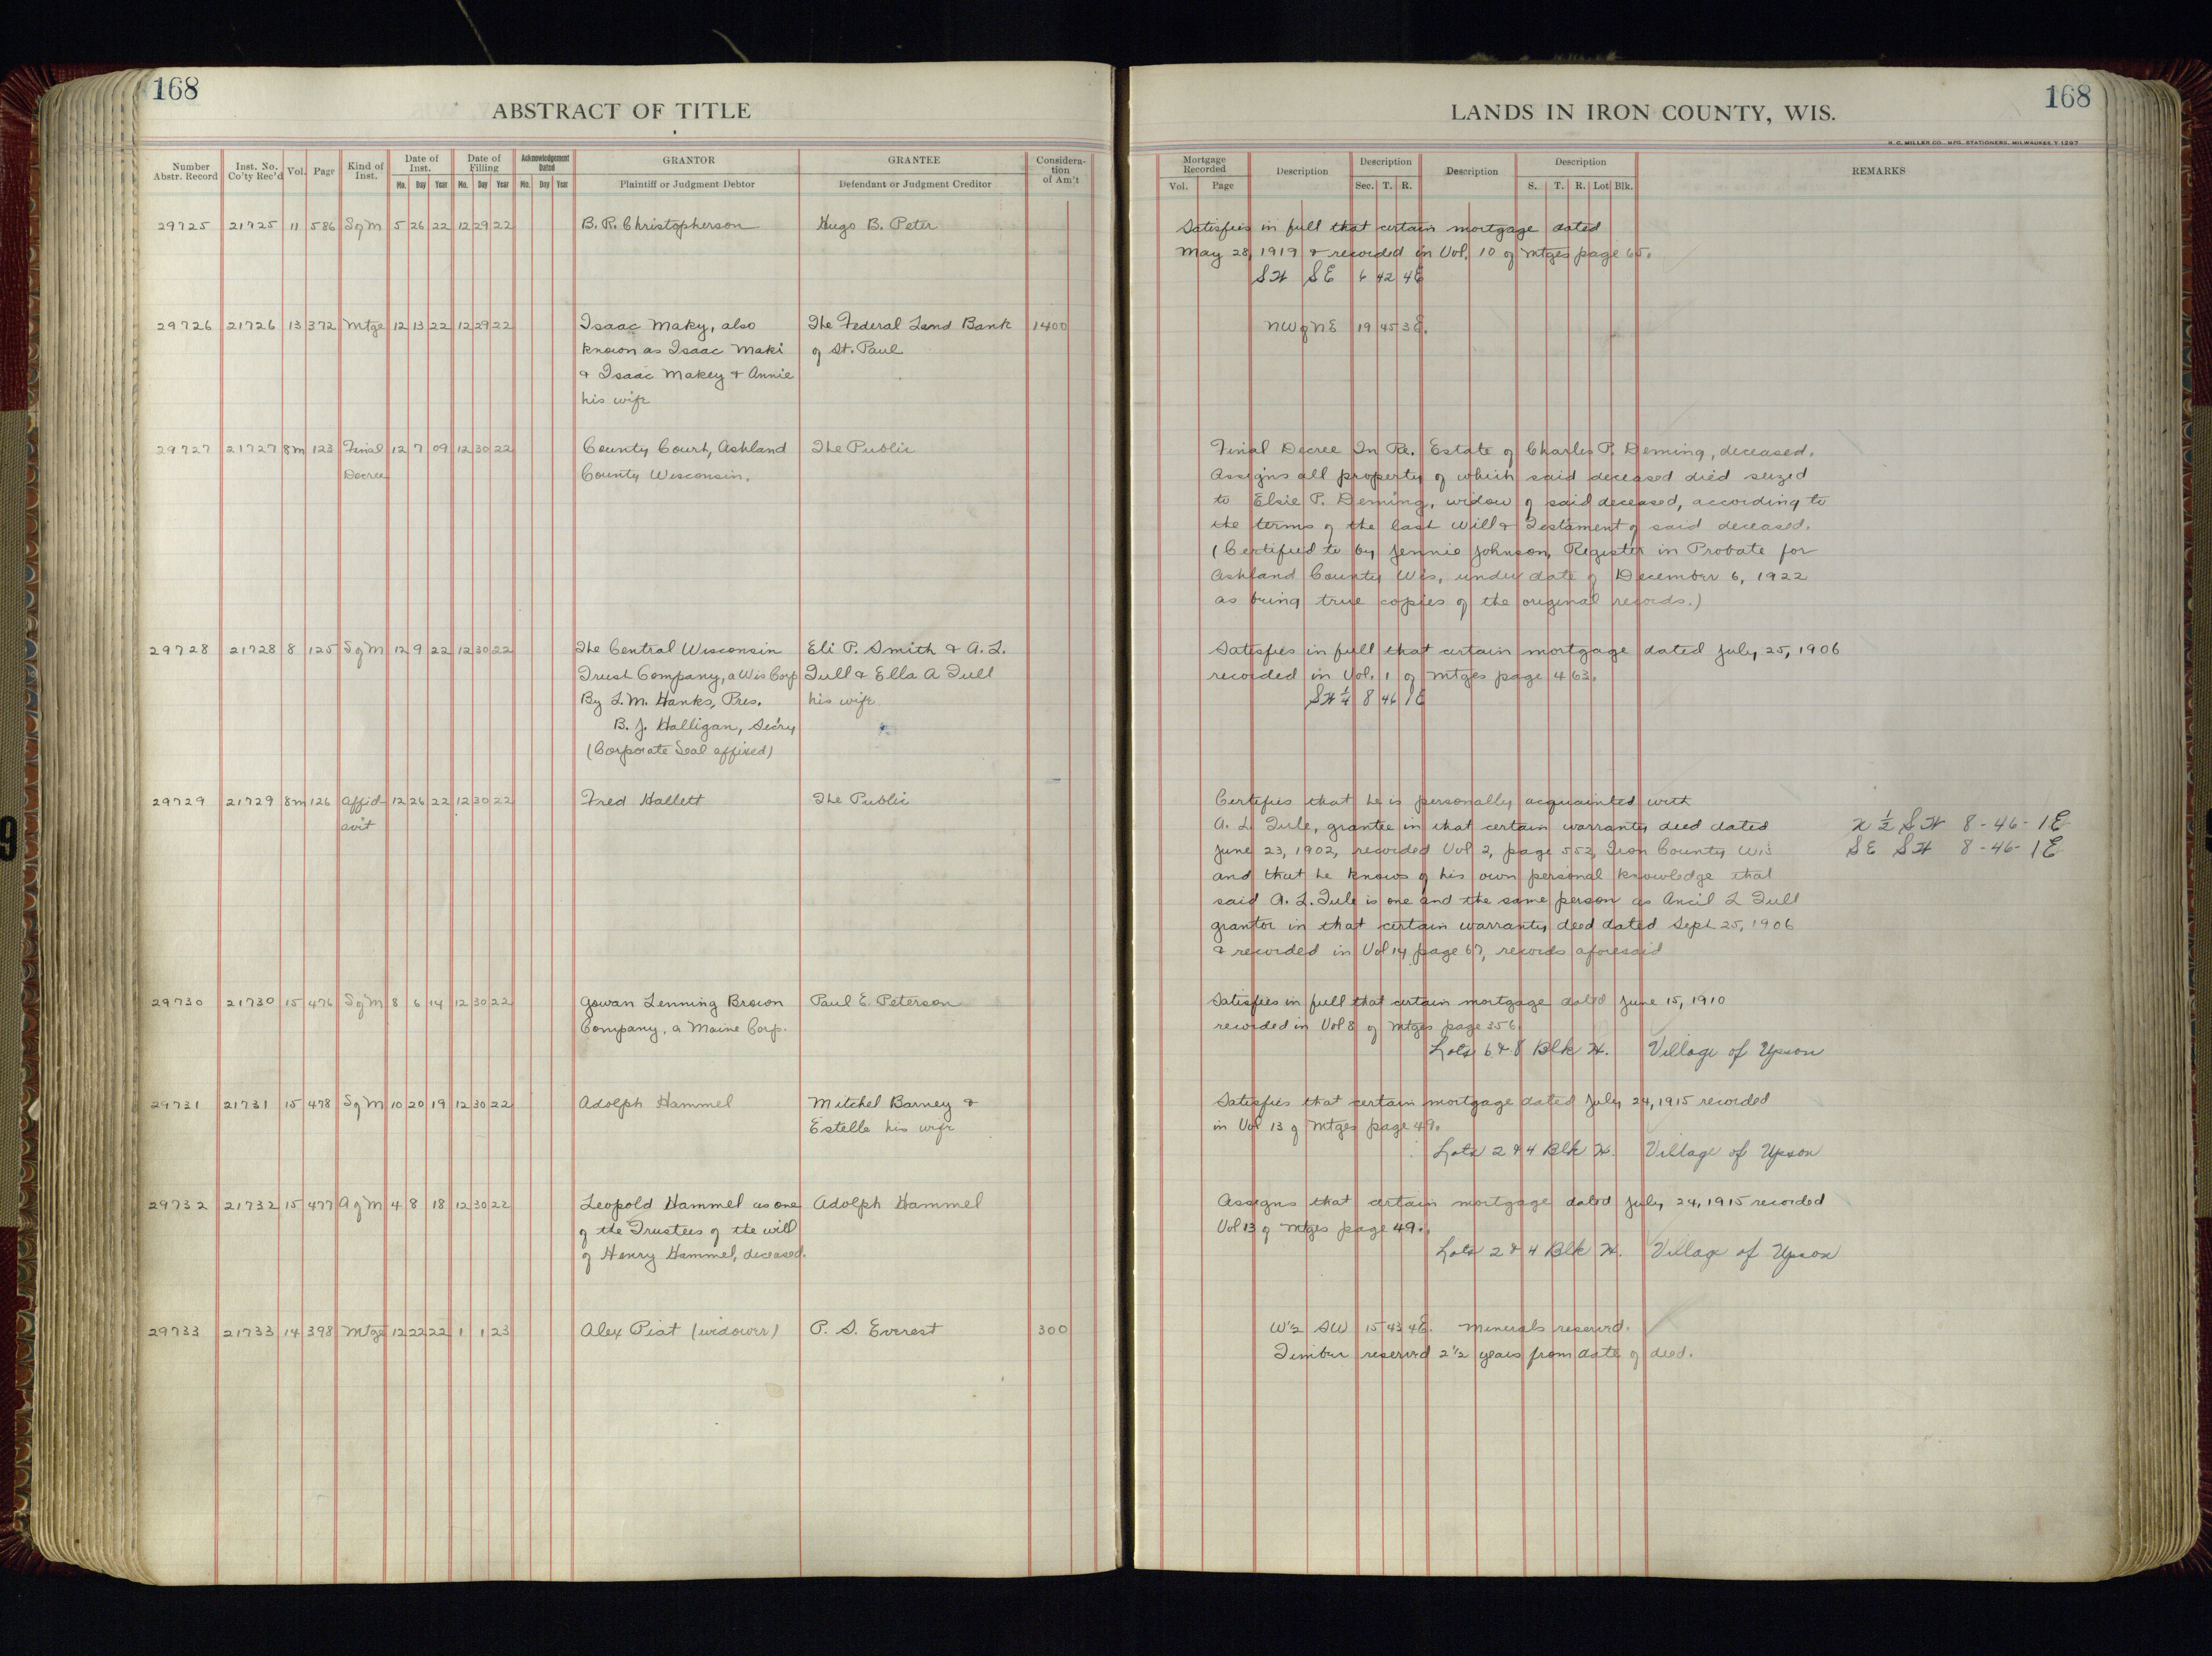 168
ABSTRACT OF TITLE
Number Abstr. Record Inst. No. Co'ty Rec'd Vol. Page Kind of Inst. Date of Inst. Mo. Day Year Date of Filling Mo. Day Year Acknowledgement Dated Mo. Day Year GRANTOR Plaintiff or Judgment Debtor GRANTEE Defendant or Judgment Creditor Considera-tion of Am't
29725 21725 11 586 S of M 5 26 22 12 29 22 B. R. Christopherson Hugo B. Peter
29726 21726 13 372 Mtge 12 13 22 12 29 22 Isaac Maky, also The Federal Land Bank 1400
known as Isaac Maki of St. Paul
& Isaac Makey & Annie
his wife
29727 21727 8m 123 Final 12 7 09 12 30 22 County Court, Ashland The Public
Decree County Wisconsin.
29728 21728 8 125 S of M 12 9 22 12 30 22 The Central Wisconsin Eli P. Smith & A. L.
Trust Company, a Wis Corp Tull & Ella A Tull
By L. M. Hanks, Pres. his wife
B. J. Halligan, Sec'ry
(Corporate Seal affixed)
29729 21729 8m 126 Affid- 12 26 22 12 30 22 Fred Hallett The Public
avit
29730 21730 15 476 S of M 8 6 14 12 30 22 Gowan Lenning Brown Paul E. Peterson
Company, a Maine Corp.
29731 21731 15 478 S of M 10 20 19 12 30 22 Adolph Hammel Mitchel Barney &
Estelle his wife
29732 21732 15 477 A of M 4 8 18 12 30 22 Leopold Hammel as one Adolph Hammel
of the Trustees of the will
of Henry Hammel, deceased.
29733 21733 14 398 Mtge 12 22 22 1 1 23 Alex Piat (widower) P. S. Everest 300
168
LANDS IN IRON COUNTY, WIS.
H. C. MILLER CO. MFG. STATIONERS, MILWAUKEE, Y.1297
Mortgage Recorded Vol. Page Description Description Sec. T. R. Description Description S. T. R. Lot Blk. REMARKS
Satisfies in full that certain mortgage dated
May 28, 1919 & recorded in Vol. 10 of Mtges page 65.
SW SE 6 42 4E
NW of NE 19 45 3E.
Final Decree In Re. Estate of Charles P. Deming, deceased.
Assigns all property of which said deceased died seized
to Elsie P. Deming, widow of said deceased, according to
the terms of the last Will & Testament of said deceased.
(Certified to by Jennie Johnson, Register in Probate for
Ashland County Wis, under date of December 6, 1922
as being true copies of the original records.)
Satisfies in full that certain mortgage dated July 25, 1906
recorded in Vol. 1 of Mtges page 463.
SW ¼ 8 46 1E
Certifies that he is personally acquainted with
A. L. Tule, grantee in that certain warranty deed dated N ½ SW 8-46-1E
June 23, 1902, recorded Vol 2, page 552, Iron County Wis SE SW 8-46-1E
and that he knows of his own personal knowledge that
said A. L. Tule is one and the same person as Ancil L Tull
grantor in that certain warranty deed dated Sept 25, 1906
& recorded in Vol 14 page 67, records aforesaid
Satisfies in full that certain mortgage dated June 15, 1910
recorded in Vol 8 of Mtges page 356.
Lots 6 & 8 Blk W. Village of Upson
Satisfies that certain mortgage dated July 24, 1915 recorded
in Vol 13 of Mtges page 49.
Lots 2 & 4 Blk W. Village of Upson
Assigns that certain mortgage dated July 24, 1915 recorded
Vol 13 of Mtges page 49.
Lots 2 & 4 Blk W. Village of Upson
W½ SW 15 43 4E. Minerals reserved.
Timber reserved 2½ years from date of deed.